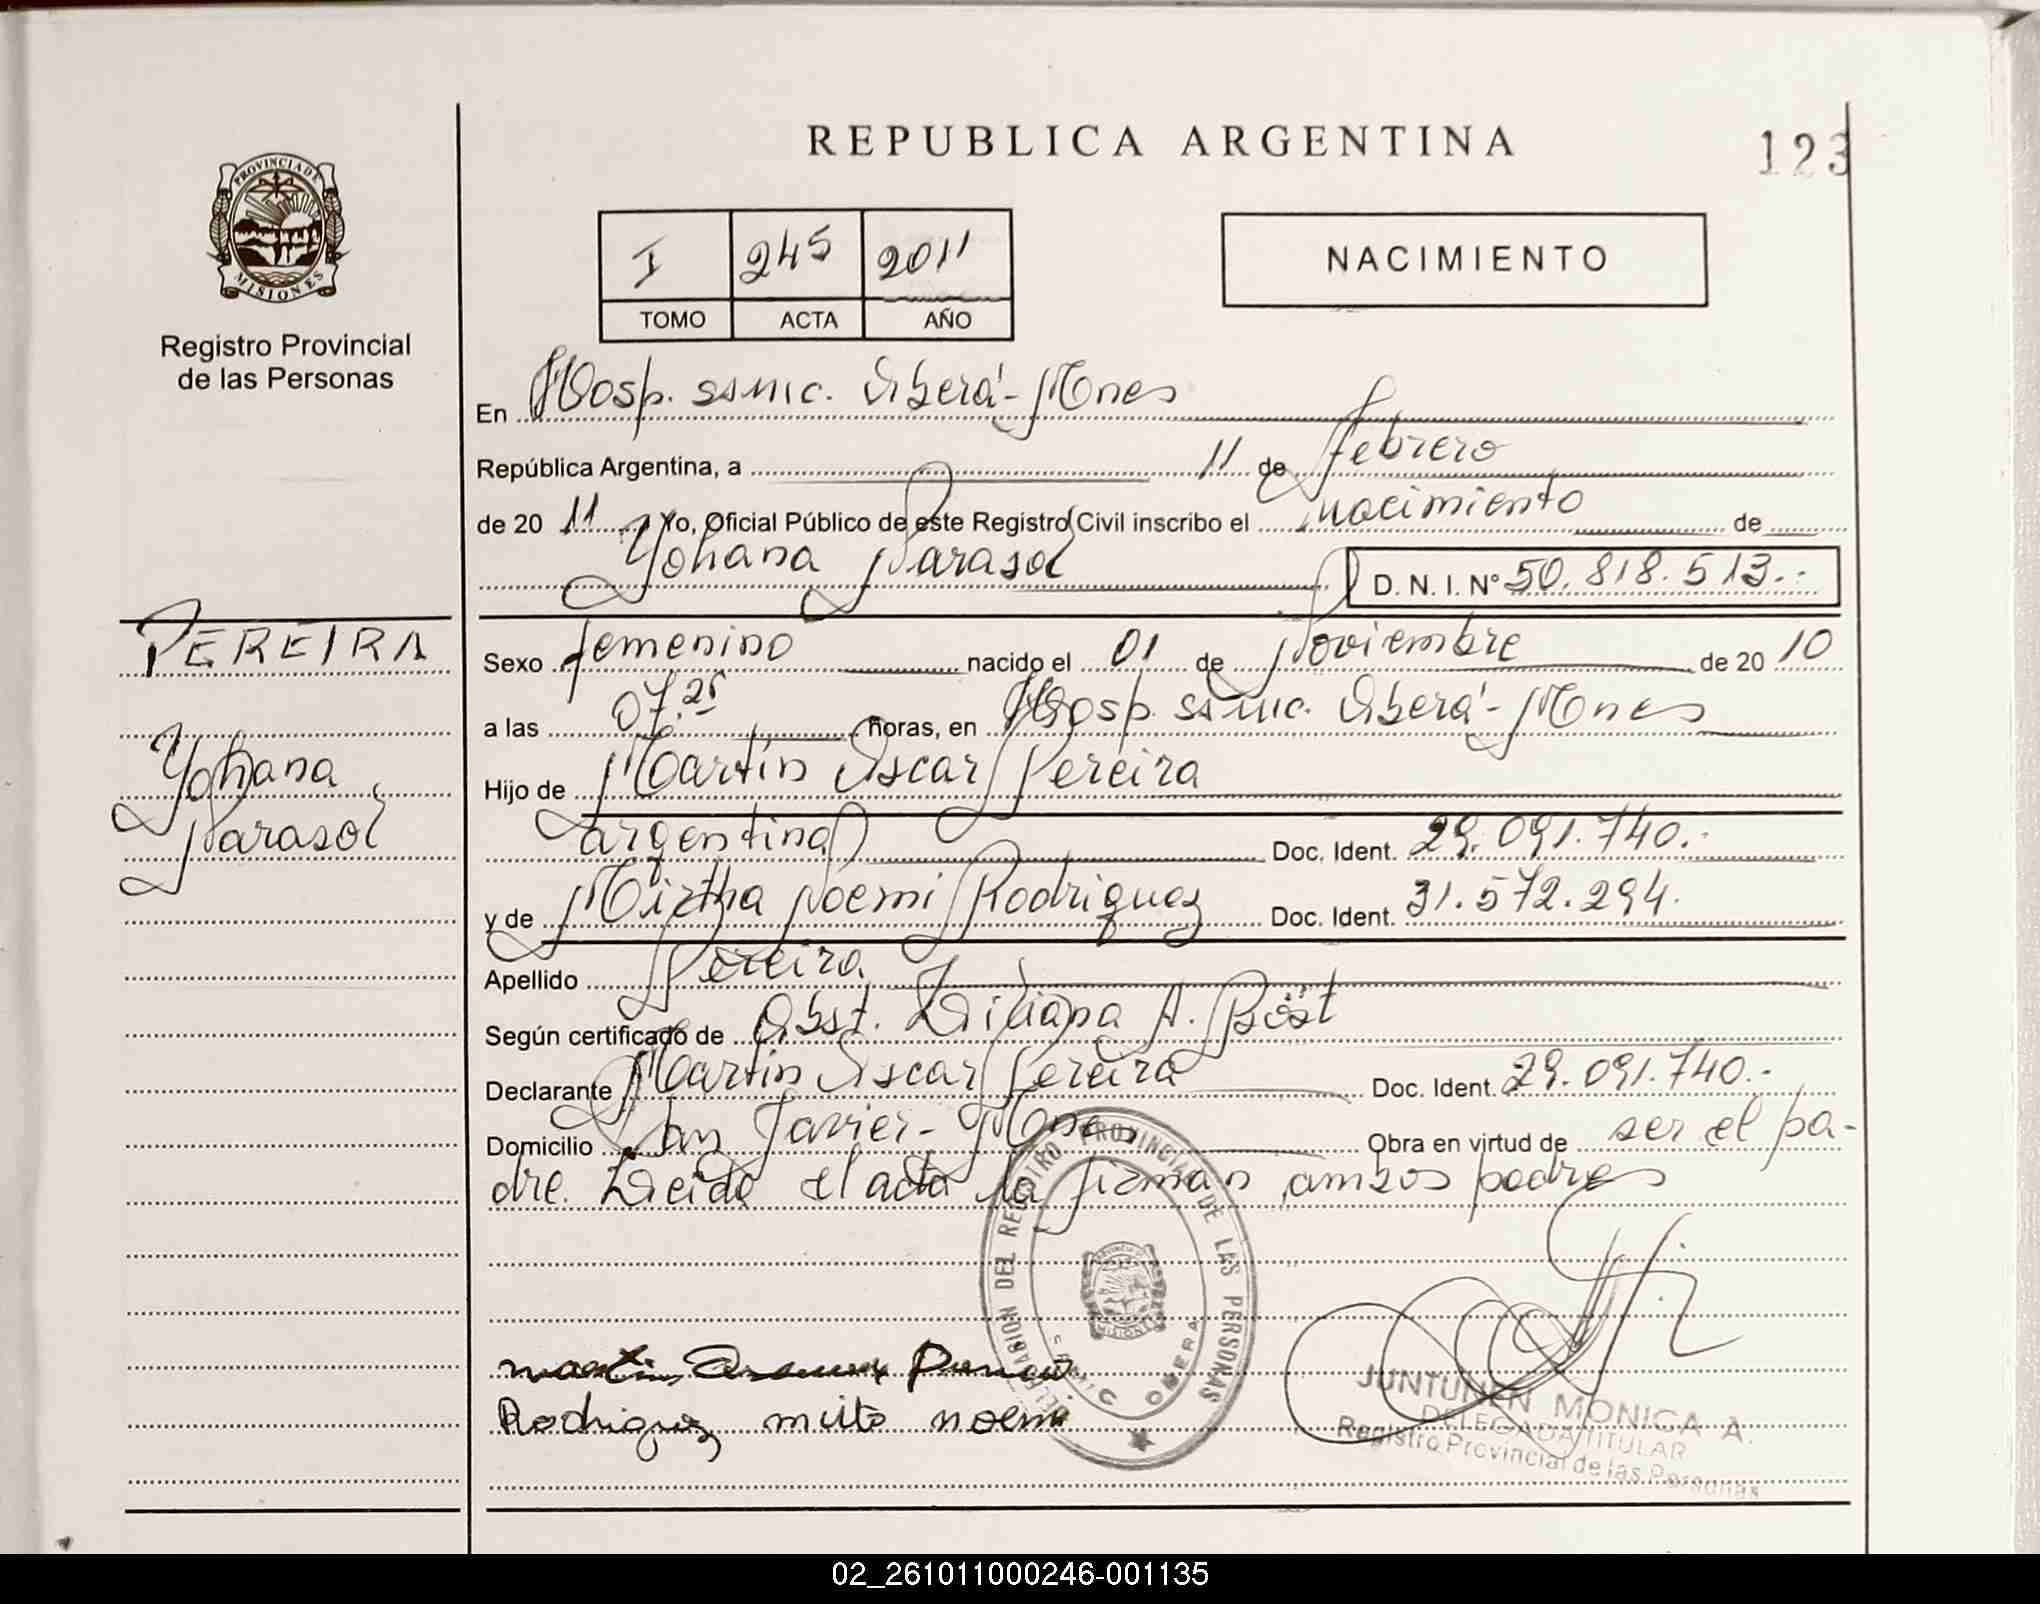 REPUBLICA ARGENTINA
123
PROVINCIA DE
MISIONES
Registro Provincial
de las Personas
I 245 2011
TOMO ACTA AÑO
NACIMIENTO
En Hosp. ssmic. Oberá - Mnes
República Argentina, a 11 de febrero
de 20 11 Yo, Oficial Público de este Registro Civil inscribo el nacimiento de
Yohana Marasol
D. N. I. Nº 50.818.513.-
PEREIRA
Yohana
Marasol
Sexo femenino nacido el 01 de Noviembre de 20 10
a las 07.25 horas, en Hosp. ssmic. Oberá - Mnes
Hijo de Martín Oscar Pereira
argentina Doc. Ident. 29.091.740.-
y de Mirtha Noemi Rodriguez Doc. Ident. 31.572.294.
Apellido Pereira
Según certificado de Obst. Liliana A. Böst
Declarante Martín Oscar Pereira Doc. Ident. 29.091.740.-
Domicilio San Javier - Mnes Obra en virtud de ser el pa-
dre. Leida el acta la firman ambos padres
DELEGACION DEL REGISTRO PROVINCIAL DE LAS PERSONAS
OBERA
Rodriguez noemi
JUNTUNEN MONICA A.
DELEGADA TITULAR
Registro Provincial de las Personas
02_261011000246-001135